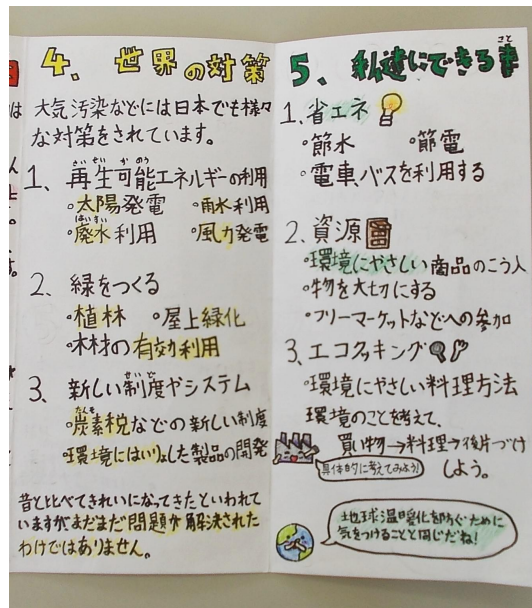 4、世界の対策
大気汚染などには日本でも様々
な対策をされています。
1、再生可能エネルギーの利用
・太陽発電 ・雨水利用
・廃水利用 ・風力発電
2、緑をつくる
・植林 ・屋上緑化
・木材の有効利用
3、新しい制度やシステム
・炭素税などの新しい制度
・環境にはいりょした製品の開発
昔と比べてきれいになってきたといわれて
いますがまだまだ問題が解決された
わけではありません。
5、私達にできる事
1、省エネ
・節水 ・節電
・電車、バスを利用する
2、資源
・環境にやさしい商品のこう入
・物を大切にする
・フリーマーケットなどへの参加
3、エコクッキング
・環境にやさしい料理方法
環境のことを考えて、
買い物→料理→後片づけ
しよう。
具体的に考えてみよう!
地球温暖化を防ぐために
気をつけることと同じだね!